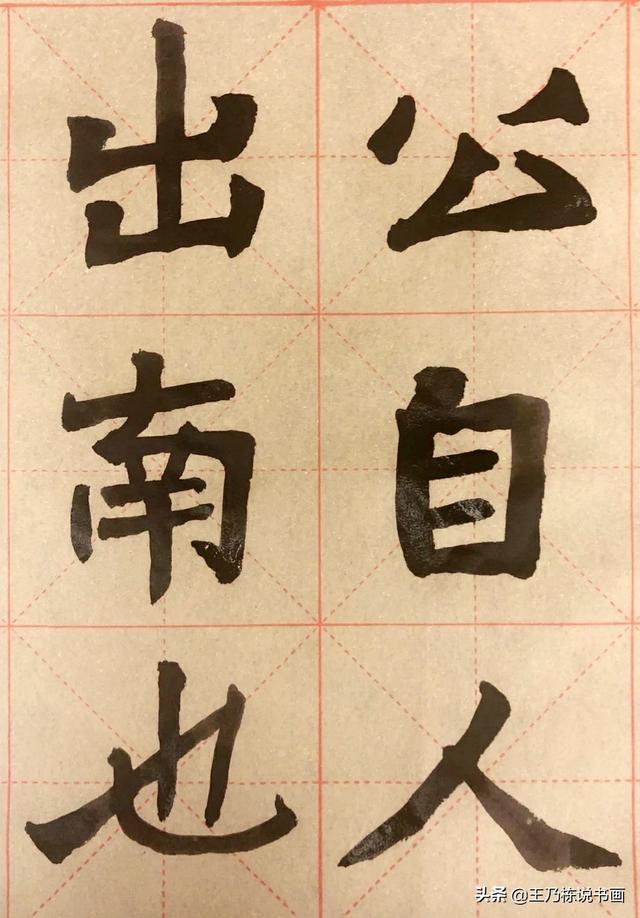 公自人
出南也
头条 @王乃栋说书画